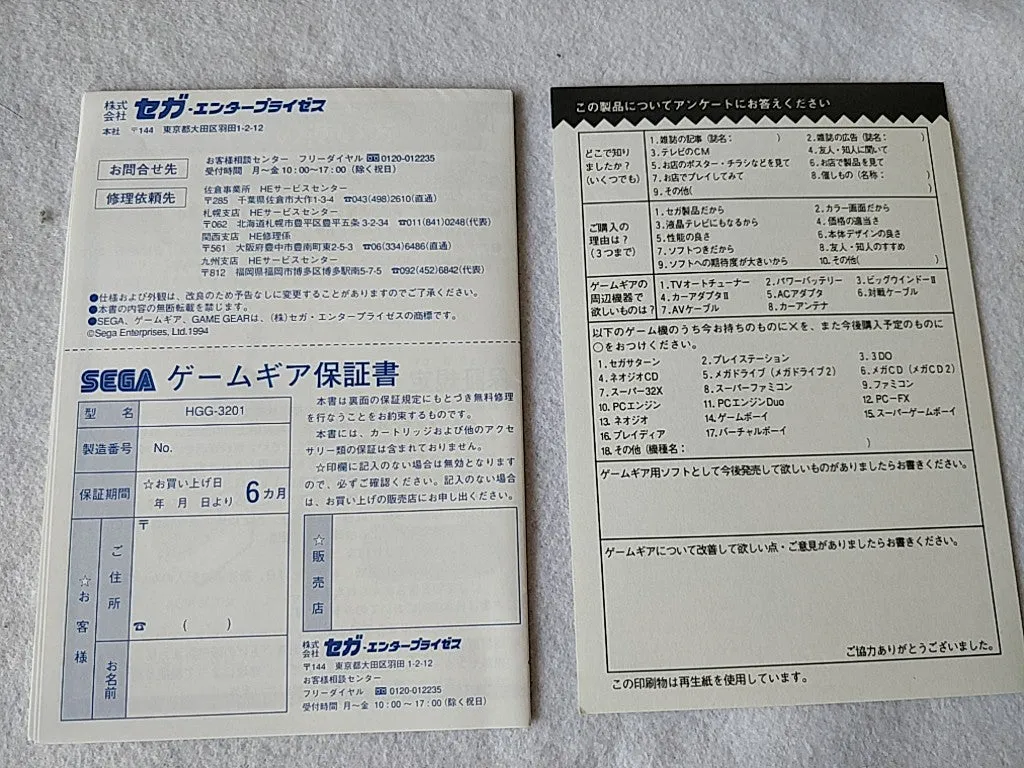 株式会社 セガ・エンタープライゼス
本社 〒144 東京都大田区羽田1-2-12
お問合せ先
お客様相談センター フリーダイヤル 0120-012235
受付時間 月〜金 10:00〜17:00(除く祝日)
修理依頼先
佐倉事業所 HEサービスセンター
〒285 千葉県佐倉市大作1-3-4 ☎043(498)2610(直通)
札幌支店 HEサービスセンター
〒062 北海道札幌市豊平区豊平五条 3-2-34 ☎011(841)0248(代表)
関西支店 HE修理係
〒561 大阪府豊中市豊南町東2-5-3 ☎06(334)6486(直通)
九州支店 HEサービスセンター
〒812 福岡県福岡市博多区博多駅南5-7-5 ☎092(452)6842(代表)
●仕様および外観は、改良のため予告なしに変更することがありますのでご了承ください。
●本書の内容の無断転載を禁じます。
●SEGA、ゲームギア、GAME GEARは、(株)セガ・エンタープライゼスの商標です。
©Sega Enterprises, Ltd.1994
SEGA ゲームギア保証書
型名 HGG-3201
製造番号 No.
保証期間 ☆お買い上げ日
年 月 日より 6カ月
☆お客様
ご住所
〒
☎ ( )
お名前
本書は裏面の保証規定にもとづき無料修理
を行なうことをお約束するものです。
本書には、カートリッジおよび他のアクセ
サリー類の保証は含まれておりません。
☆印欄に記入のない場合は無効となります
ので、必ずご確認ください。記入のない場合
は、お買い上げの販売店にお申し出ください。
☆販売店
株式会社 セガ・エンタープライゼス
〒144 東京都大田区羽田 1-2-12
お客様相談センター
フリーダイヤル 0120-012235
受付時間 月〜金 10:00〜17:00(除く祝日)
この製品についてアンケートにお答えください
どこで知り
ましたか?
(いくつでも)
1.雑誌の記事(誌名: ) 2.雑誌の広告(誌名: )
3.テレビのCM 4.友人・知人に聞いて
5.お店のポスター・チラシなどを見て 6.お店で製品を見て
7.お店でプレイしてみて 8.催しもの(名称: )
9.その他( )
ご購入の
理由は?
(3つまで)
1.セガ製品だから 2.カラー画面だから
3.液晶テレビにもなるから 4.価格の適当さ
5.性能の良さ 6.本体デザインの良さ
7.ソフトつきだから 8.友人・知人のすすめ
9.ソフトへの期待度が大きいから 10.その他( )
ゲームギアの
周辺機器で
欲しいものは?
1.TVオートチューナー 2.パワーバッテリー 3.ビッグウインドーII
4.カーアダプタII 5.ACアダプタ 6.対戦ケーブル
7.AVケーブル 8.カーアンテナ
以下のゲーム機のうち今お持ちのものに×を、また今後購入予定のものに
○をおつけください。
1.セガサターン 2.プレイステーション 3.3DO
4.ネオジオCD 5.メガドライブ(メガドライブ2) 6.メガCD(メガCD2)
7.スーパー32X 8.スーパーファミコン 9.ファミコン
10.PCエンジン 11.PCエンジンDuo 12.PC-FX
13.ネオジオ 14.ゲームボーイ 15.スーパーゲームボーイ
16.プレイディア 17.バーチャルボーイ
18.その他(機種名: )
ゲームギア用ソフトとして今後発売して欲しいものがありましたらお書きください。
ゲームギアについて改善して欲しい点・ご意見がありましたらお書きください。
ご協力ありがとうございました。
この印刷物は再生紙を使用しています。